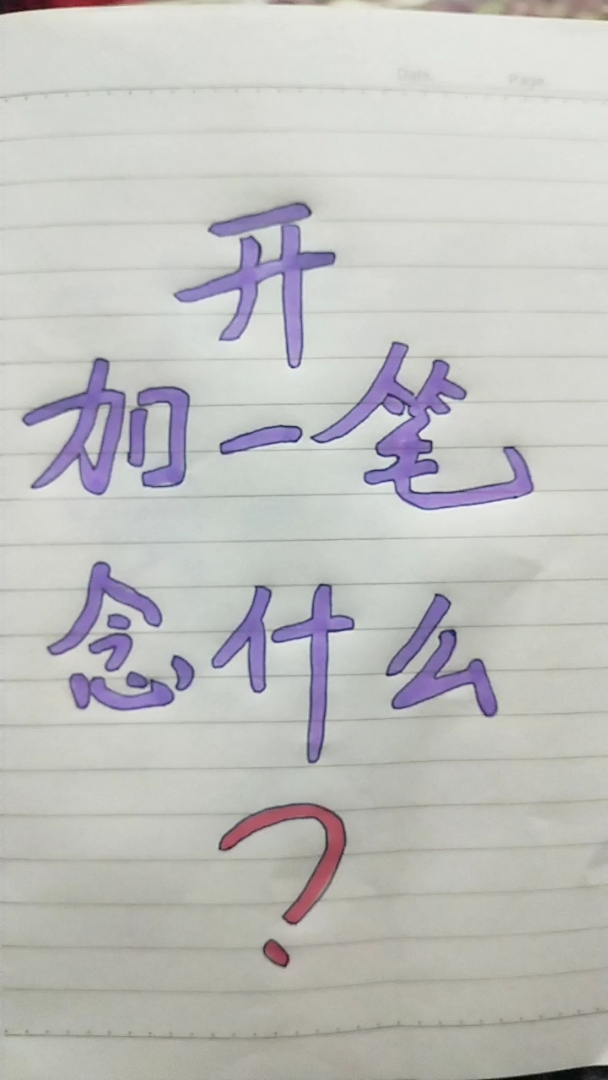 Date.
Page
开
加一笔
念什么
?